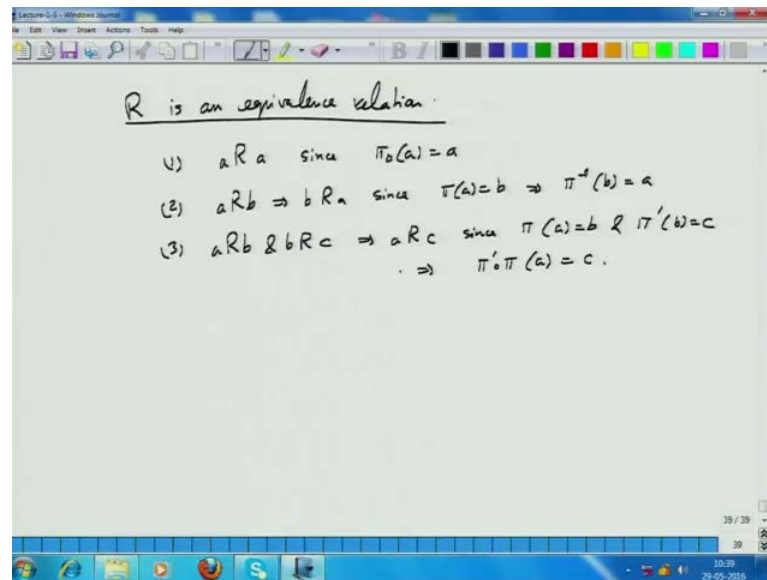 Lecture-1-5 - Windows Journal
File Edit View Insert Actions Tools Help
R is an equivalence relation.
(1) a R a since π₀(a) = a
(2) aRb ⇒ bRa since π(a)=b ⇒ π⁻¹(b) = a
(3) aRb & bRc ⇒ aRc since π(a)=b & π'(b)=c
⇒ π'∘π(a) = c.
39 / 39
39
10:39
29-05-2016